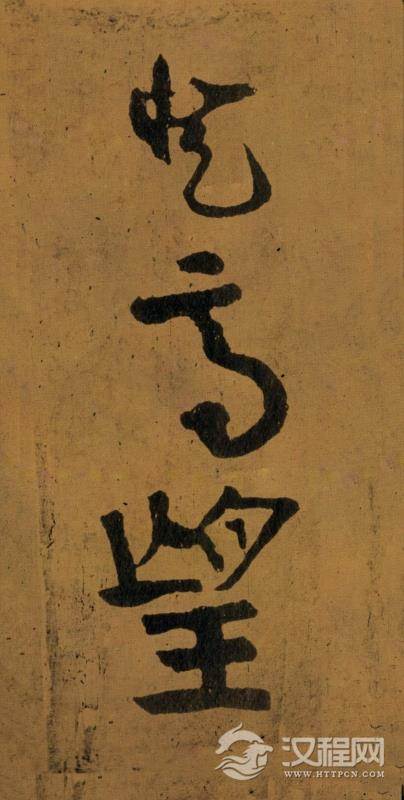 高望
汉程网
WWW.HTTPCN.COM